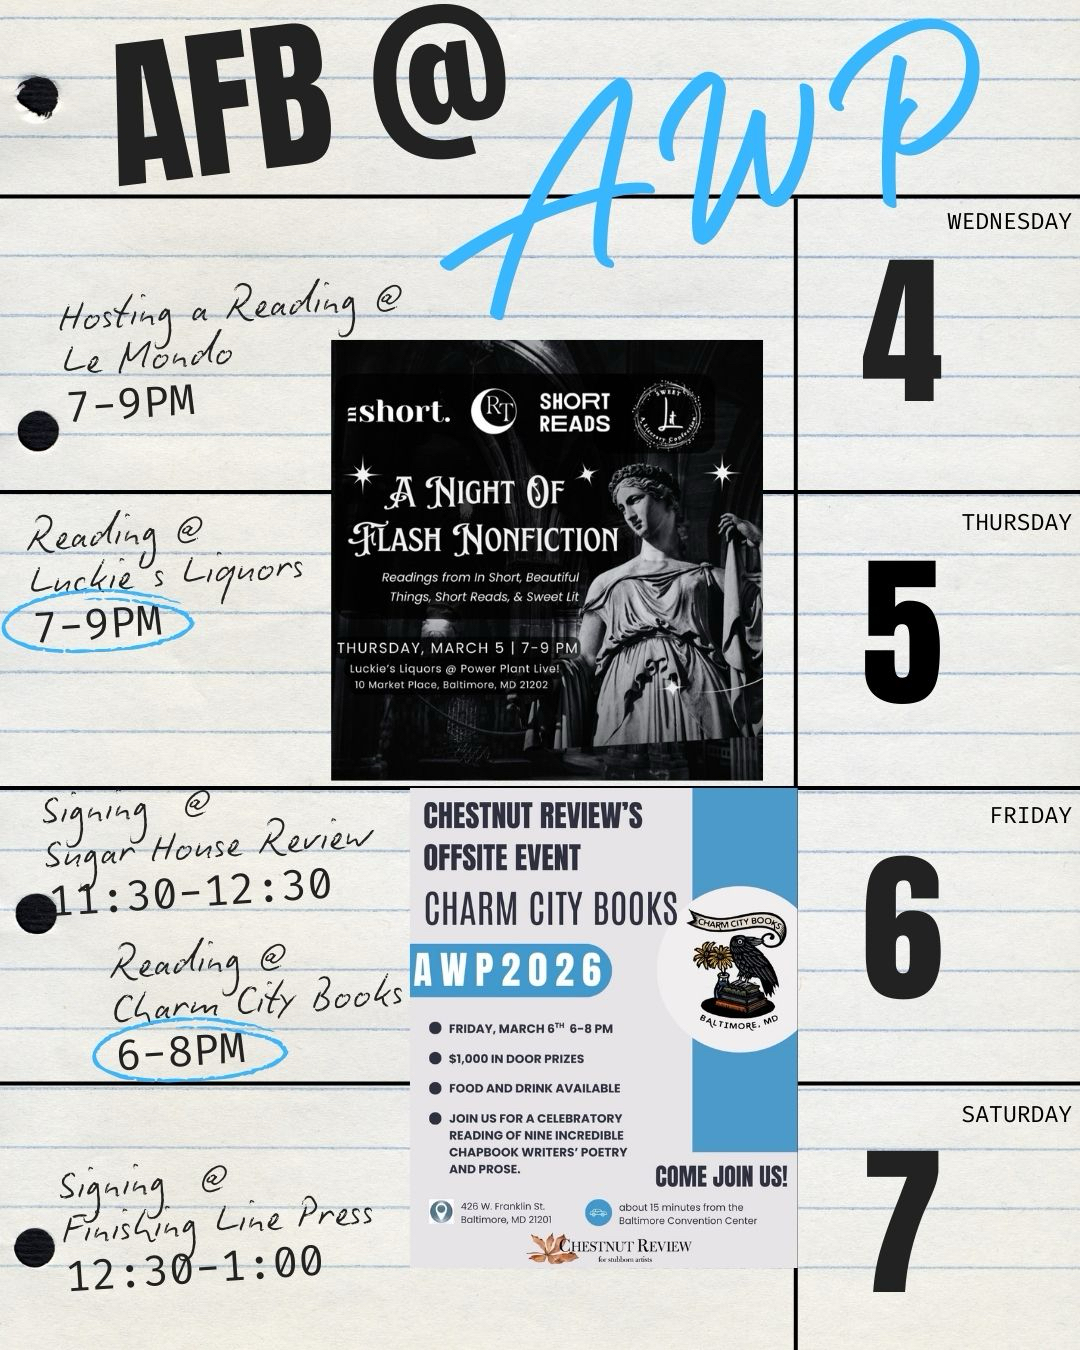 AFB @
AWP
WEDNESDAY
4
Hosting a Reading @
Le Mondo
7-9PM
THURSDAY
5
Reading @
Luckie's Liquors
7-9PM
in short.
RT
SHORT
READS
SWEET
Lit
A Literary Confection
A NIGHT OF
FLASH NONFICTION
Readings from In Short, Beautiful
Things, Short Reads, & Sweet Lit
THURSDAY, MARCH 5 | 7-9 PM
Luckie's Liquors @ Power Plant Live!
10 Market Place, Baltimore, MD 21202
FRIDAY
6
Signing @
Sugar House Review
11:30-12:30
Reading @
Charm City Books
6-8PM
CHESTNUT REVIEW'S
OFFSITE EVENT
CHARM CITY BOOKS
AWP2026
CHARM CITY BOOKS
BALTIMORE, MD
FRIDAY, MARCH 6TH 6-8 PM
$1,000 IN DOOR PRIZES
FOOD AND DRINK AVAILABLE
JOIN US FOR A CELEBRATORY
READING OF NINE INCREDIBLE
CHAPBOOK WRITERS' POETRY
AND PROSE.
COME JOIN US!
426 W. Franklin St.
Baltimore, MD 21201
about 15 minutes from the
Baltimore Convention Center
CHESTNUT REVIEW
for stubborn artists
SATURDAY
7
Signing @
Finishing Line Press
12:30-1:00